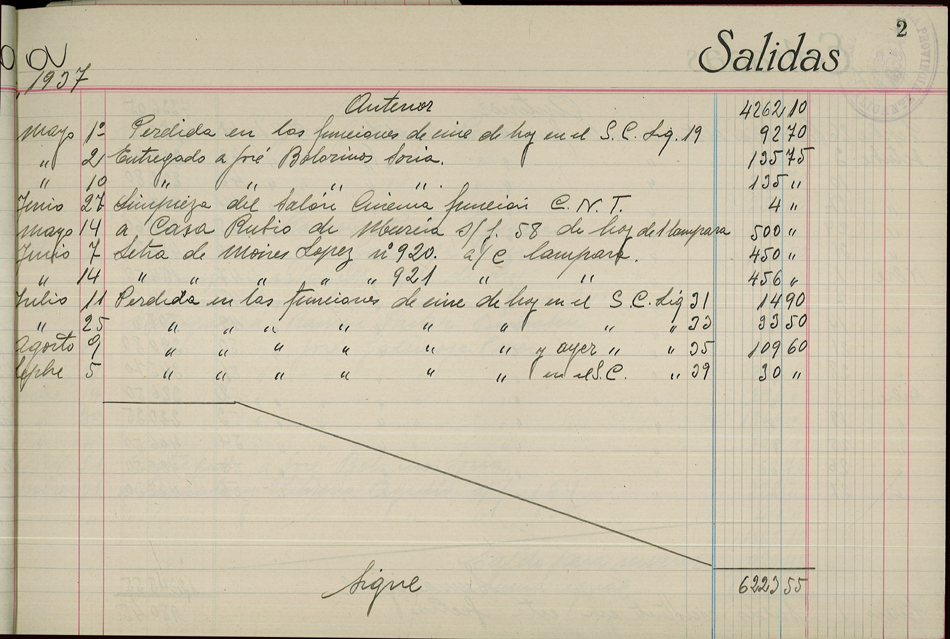 2
Salidas
1937
Anterior 4262 10
Mayo 1º Perdida en las funciones de cine de hoy en el S.C. Liq. 19 92 70
" 2 Entregado a José Bolorinos Soria. 135 75
" 10 " " " " 135 "
Junio 27 Limpieza del Salón Cinema función C.N.T. 4 "
Mayo 14 a Casa Rubio de Murcia s/f. 58 de hoy de 1 lampara 500 "
Junio 7 Letra de Moises Lopez nº 920. a/c lampara. 450 "
" 14 " " " " 921 " " 456 "
Julio 11 Perdida en las funciones de cine de hoy en el S.C. Liq 31 14 90
" 25 " " " " " " " " 33 33 50
Agosto 9 " " " " " " y ayer " " 35 109 60
Sepbre 5 " " " " " " en el S.C. " 39 30 "
Sigue 6223 55